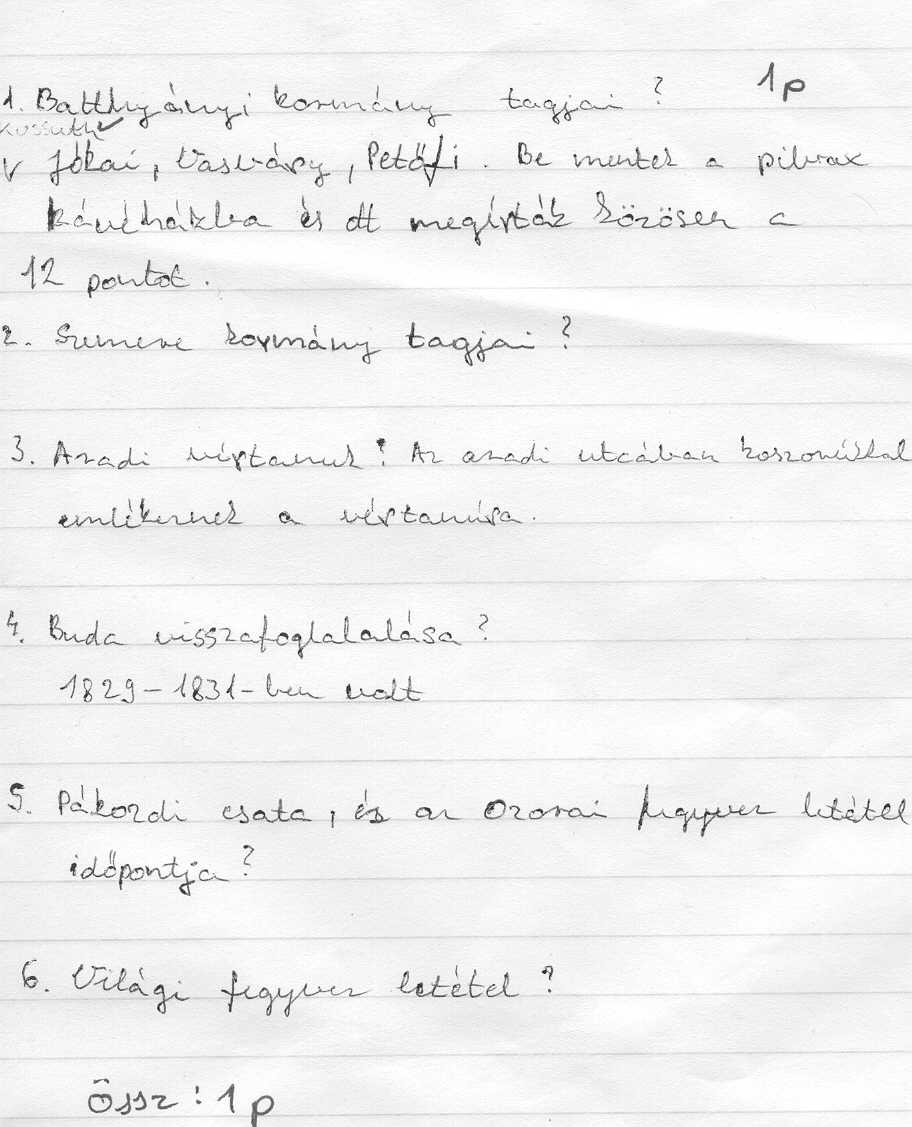 1. Batthyányi kormány tagjai ? 1p
Kossuth ✓
✓ Jókai, Vasváry, Petőfi. Be mentek a pilvax
kávéházba és ott megírták közösen a
12 pontot.
2. Szemere kormány tagjai ?
3. Aradi vértanuk? Az aradi utcában koszorúkkal
emlékeznek a vértanúsa.
4. Buda visszafoglalalása ?
1829 - 1831-ben volt
5. Pákozdi csata, és az Ozorai fegyver letétel
időpontja ?
6. Világi fegyver letétel ?
Össz: 1p